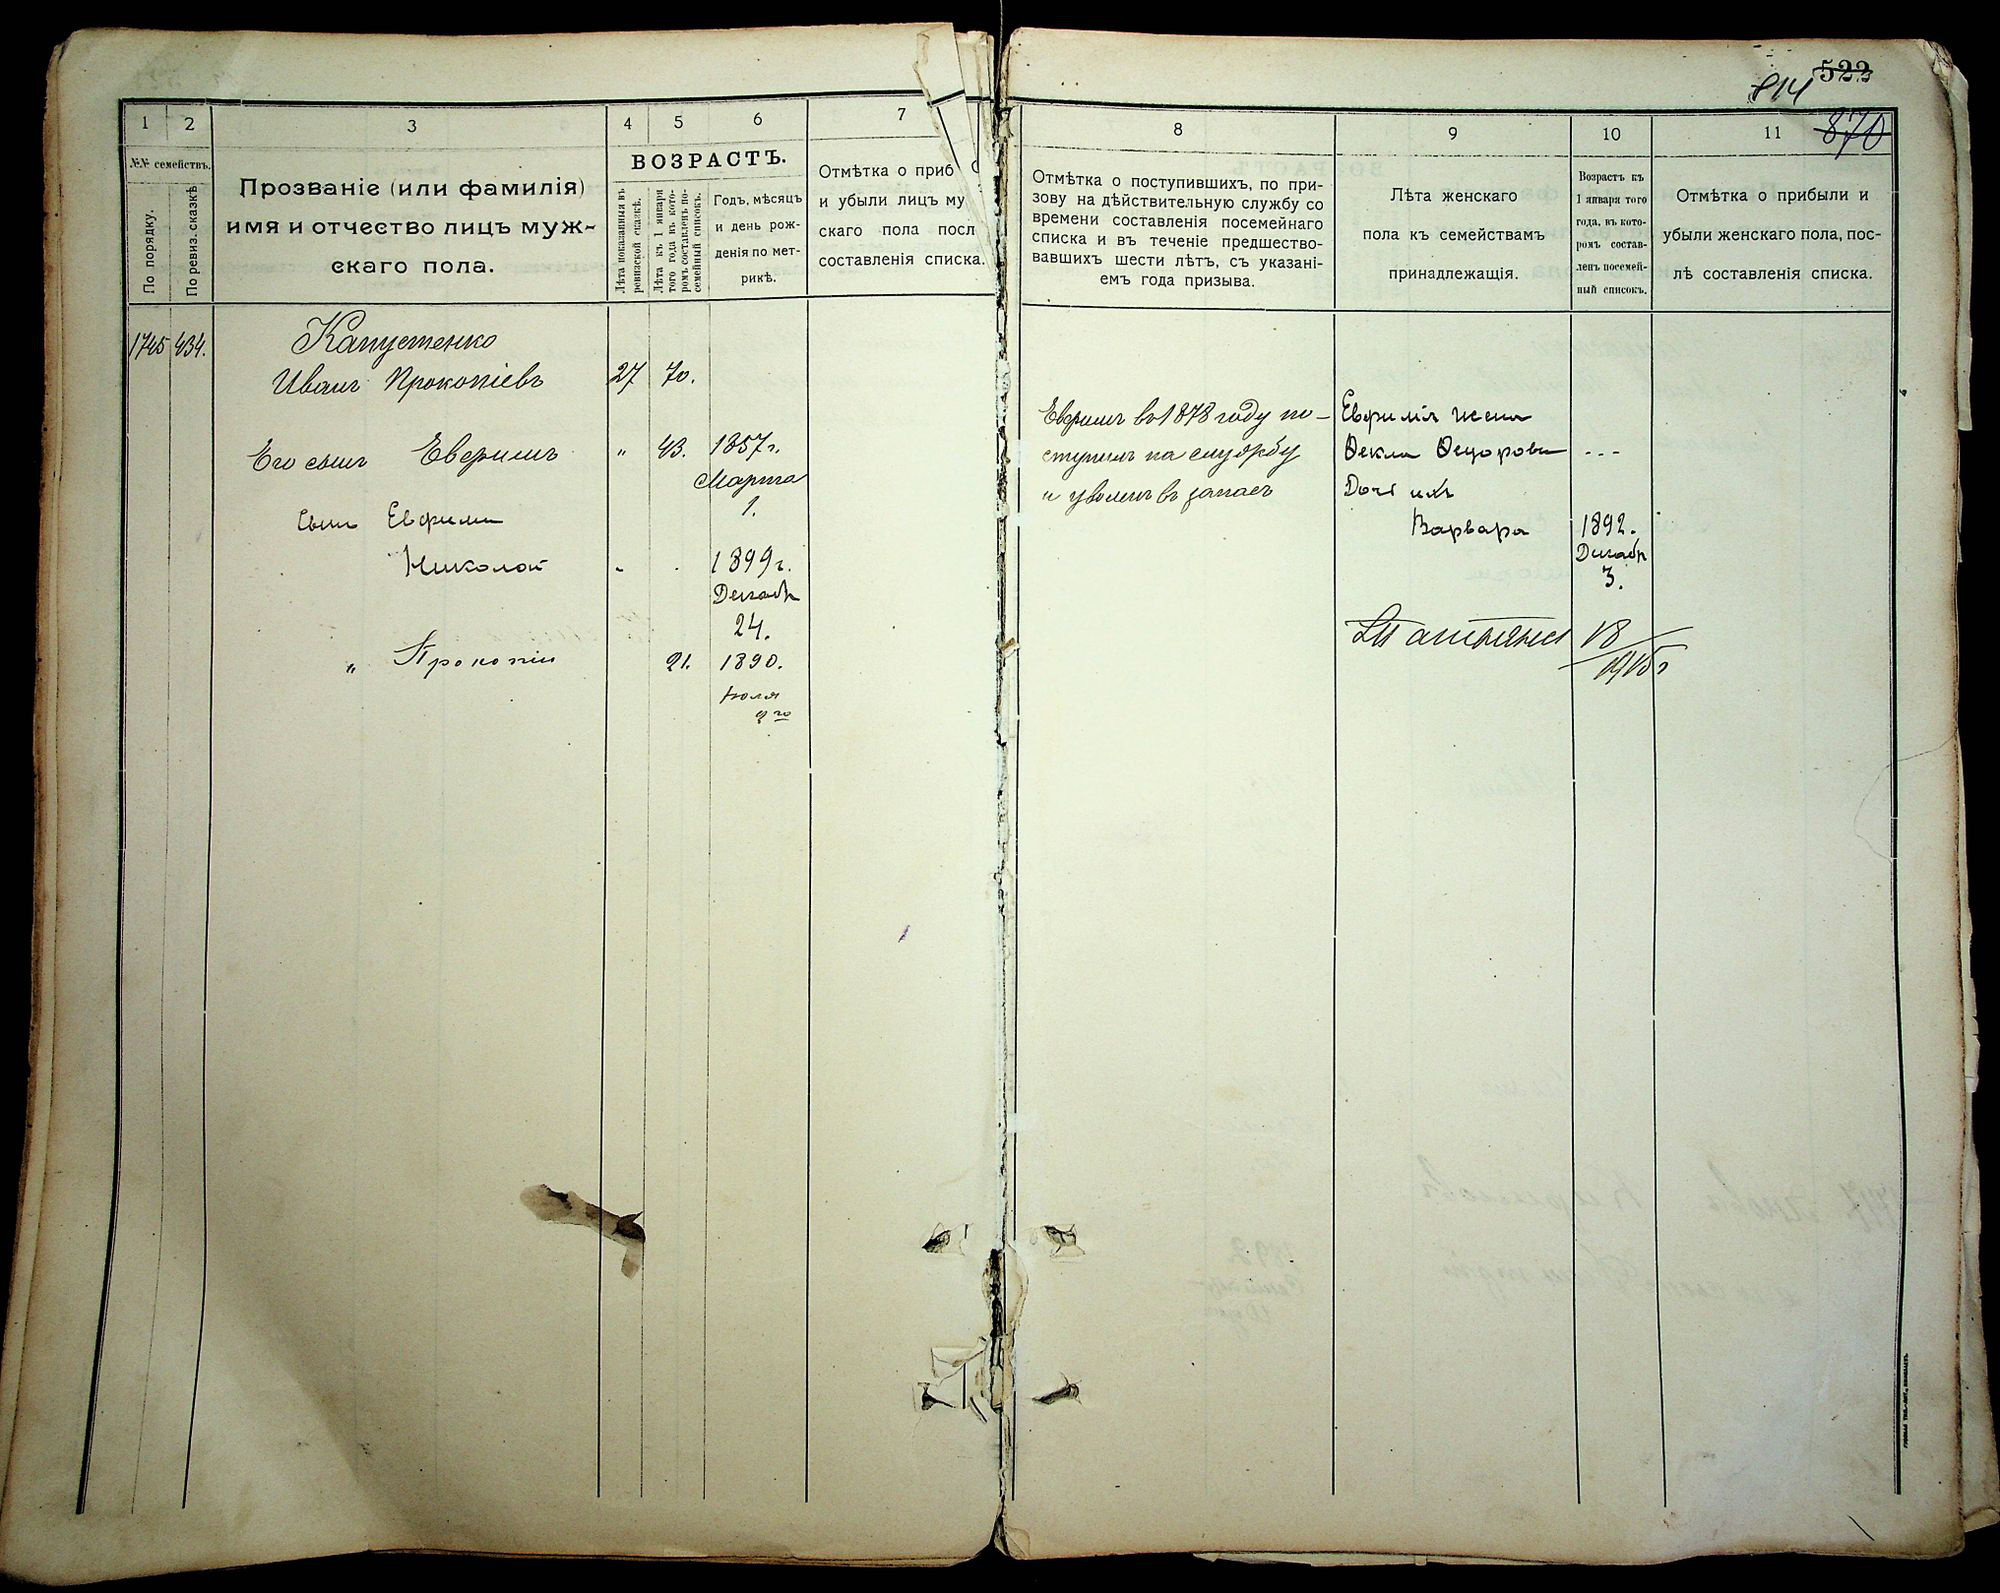 522
814
870
1
2
3
4
5
6
7
8
9
10
11
№№ семействъ.
По порядку.
По ревиз. сказкѣ
Прозваніе (или фамилія)
имя и отчество лицъ муж-
скаго пола.
ВОЗРАСТЪ.
Лѣта показанныя въ
ревизской сказкѣ.
Лѣта къ 1 января
того года къ кото-
ромъ составленъ по-
семейный списокъ.
Годъ, мѣсяцъ
и день рож-
денія по мет-
рикѣ.
Отмѣтка о приб
и убыли лицъ му
скаго пола посл
составленія списка.
Отмѣтка о поступившихъ, по при-
зову на дѣйствительную службу со
времени составленія посемейнаго
списка и въ теченіе предшество-
вавшихъ шести лѣтъ, съ указані-
емъ года призыва.
Лѣта женскаго
пола къ семействамъ
принадлежащія.
Возрастъ къ
1 января того
года, въ кото-
ромъ состав-
ленъ посемей-
ный списокъ.
Отмѣтка о прибыли и
убыли женскаго пола, пос-
лѣ составленія списка.
1745 434.
Капустенко
Иванъ Прокопіевъ 27 70.
Его сынъ Евфимъ " 43. 1857 г.
Марта
1.
Сын Евфима
Николай
1899 г.
Декабр
24.
" Прокопій 21. 1890.
Іюля
Евфимъ въ 1878 году по-
ступилъ на службу
и уволенъ въ запасъ
Евфимія жена
Ѳекла Ѳедорова
Дочь ихъ
Варвара 1892.
Декабр
3.
Татьяна 18